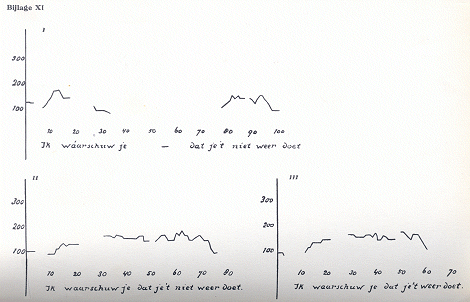 Bijlage XI
I
300
200
100
10 20 30 40 50 60 70 80 90 100
Ik waarschuw je — dat je't niet weer doet
II
300
200
100
10 20 30 40 50 60 70 80
Ik waarschuw je dat je't niet weer doet.
III
300
200
100
10 20 30 40 50 60 70
Ik waarschuw je dat je't weer doet.